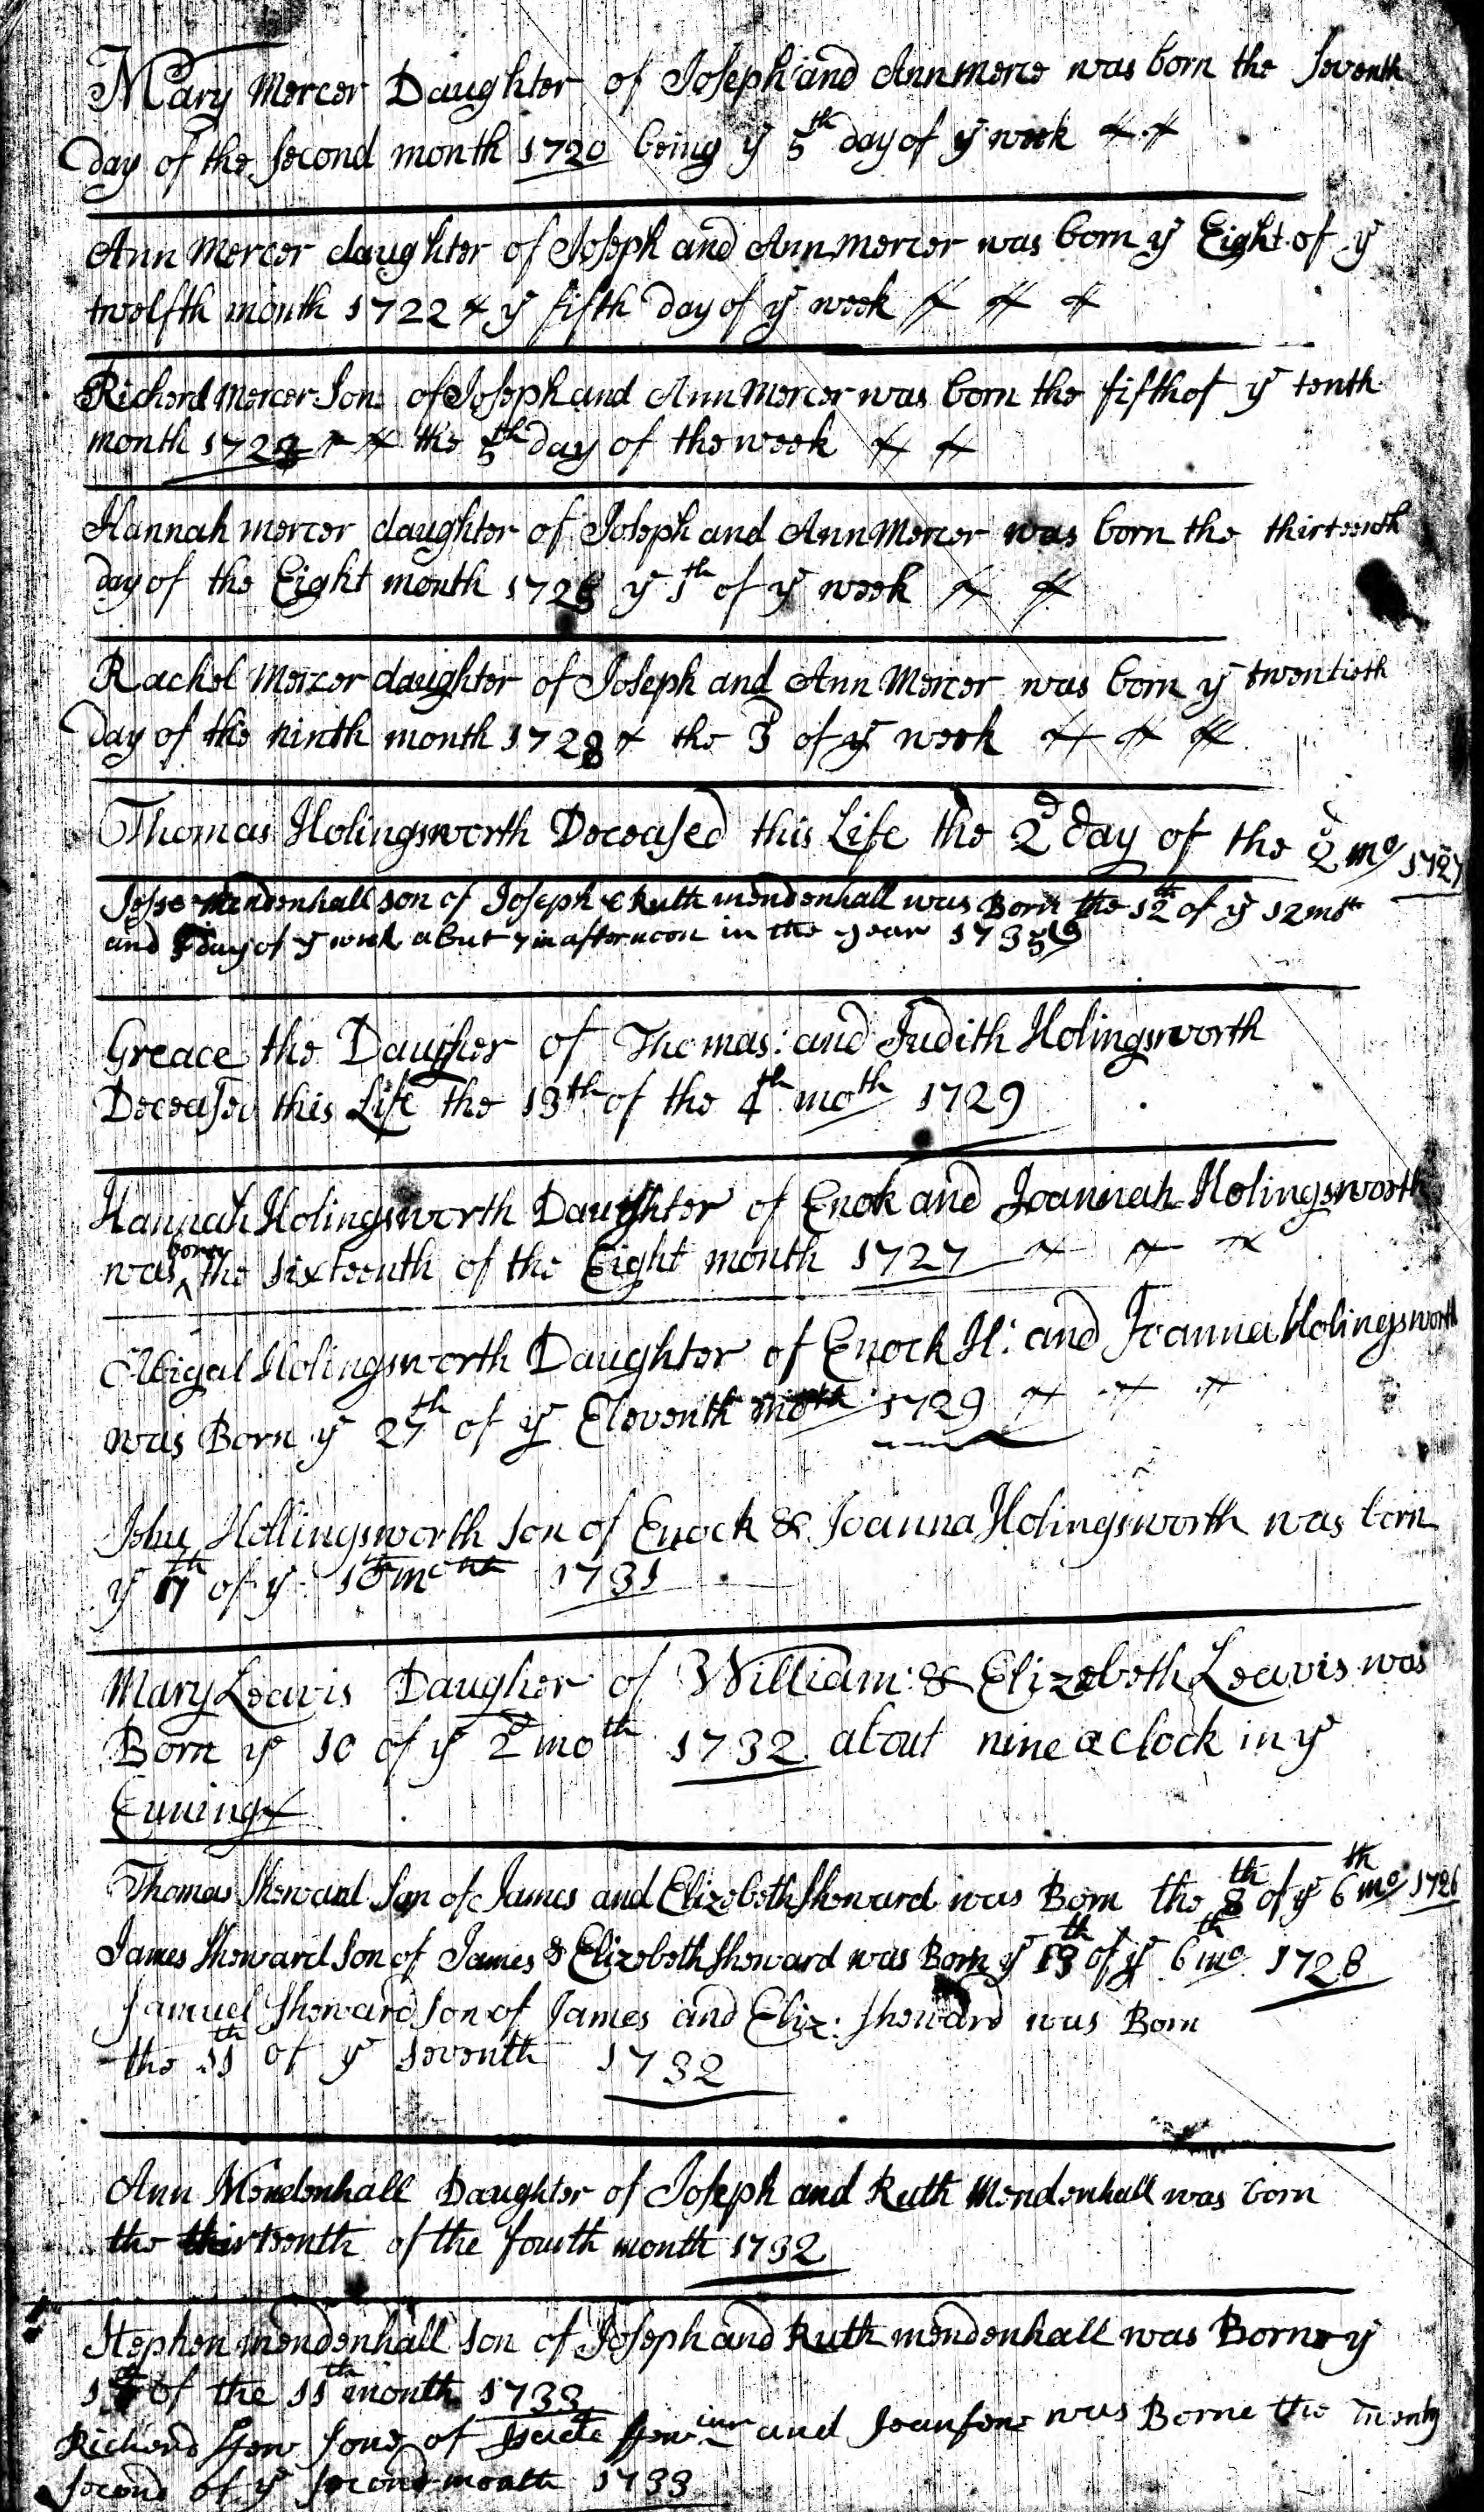 Mary Mercer Daughter of Joseph and Ann merce was born the Seventh
day of the Second month 1720 being ye 5th day of ye week
Ann Mercer daughter of Joseph and Ann mercer was born ye Eight of ye
twelfth month 1722 & ye fifth Day of ye week
Richerd Mercer Son of Joseph and Ann Mercer was born the fifth of ye tenth
month 172 the 5th day of the week
Hannah mercer daughter of Joseph and Ann Mercer was born the thirteenth
day of the Eight month 172 ye 1th of ye week
Rachel Mercer daughter of Joseph and Ann Mercer was born ye twentieth
Day of the ninth month 1728 the 3 of ye week
Thomas Holingsworth Deceased this Life the 2d day of the 2d mo 1727
Jesse mendenhall son of Joseph & Ruth mendenhall was Born the 12th of ye 12 mth
and day of ye week about in afternoon in the year 1735/6
Greace the Daugher of Thomas: and Judith Holingsworth
Deceased this Life the 13th of the 4th moth 1729
Hannah Holingsworth Daughter of Enok and Joannah Holingsworth
was borne the sixteenth of the Eight month 1727
Abigal Holingsworth Daughter of Enoch H: and Joanna Holingsworth
was Born ye 27th of ye Eleventh moth 1729
John Hollingsworth son of Enock & Joanna Holingsworth was born
ye 17th of ye 1731
Mary Leavis Daugher of William & Elizebeth Leavis was
Born ye 10 of ye 2d moth 1732 about nine a clock in ye
Euning
Thomas Showard Son of James and Elizebeth Showard was Born the 8th of ye 6th mo 1726
James Showard Son of James & Elizebeth Showard was Born ye 13th of ye 6th mo 1728
Samuel Showard Son of James and Eliz: Showard was Born
the 11th of ye Seventh 1732
Ann Mendenhall Daughter of Joseph and Ruth Mendenhall was born
the thirteenth of the fourth month 1732
Stephen mendenhall son of Joseph and Ruth mendenhall was Borne ye
of the 11th month 1733
Richerd son of and was Borne the Twenty
second of ye second month 1733